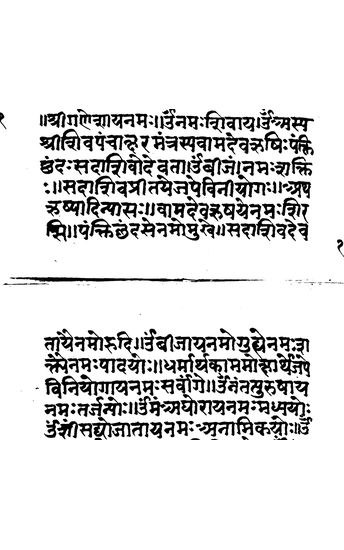 ॥श्रीगणेशायनमः॥ॐनमःशिवाय।ॐअस्य
श्रीशिवपंचाक्षरमंत्रस्यवामदेवऋषिःपंक्ति
छंदःसदाशिवोदेवता।ॐबीजं।नमःशक्ति
ः॥सदाशिवप्रीतयेजपेविनीयोगः॥अथ
ऋष्यादिन्यासः॥वामदेवऋषयेनमःशिर
सि॥पंक्तिछंदसेनमोमुखे॥सदाशिवदेव
१
तायैनमोहृदि॥ॐबीजायनमोगुह्येनमःशा
क्तयेनमःपादयोः॥धर्मार्थकाममोक्षार्थेजपे
विनियोगायनमःसर्वांगे॥ॐनंतत्पुरुषाय
नमःतर्जन्योः॥ॐमंअघोरायनमःमध्यमयोः
ॐशींसद्योजातायनमःअनामिकयोः॥ॐ